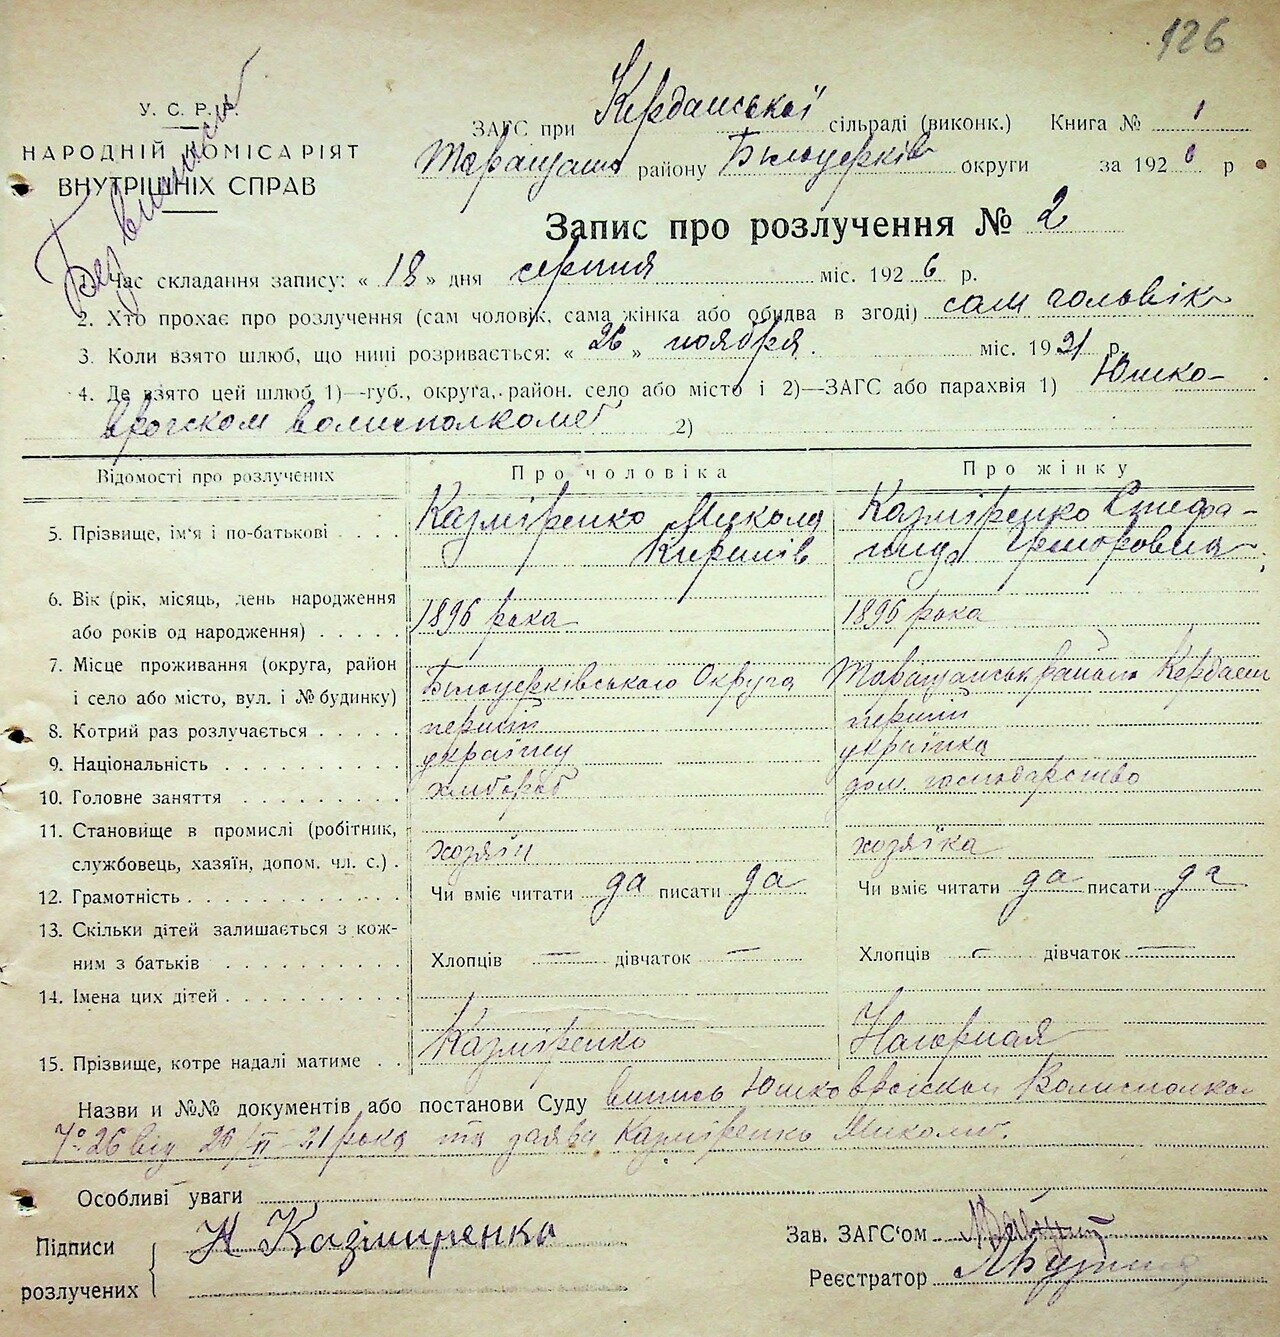 126
У. С. Р. Р.
НАРОДНІЙ КОМІСАРІЯТ
ВНУТРІШНІХ СПРАВ
Без виписи
ЗАГС при Керданської сільраді (виконк.) Книга № 1
Таращансь району Білоцерків округи за 1926 р
Запис про розлучення № 2
1. Час складання запису: « 18 » дня серпня міс. 1926 р.
2. Хто прохає про розлучення (сам чоловік, сама жінка або обидва в згоді) сам чоловік
3. Коли взято шлюб, що нині розривається: « 26 » ноября. міс. 1921 р.
4. Де взято цей шлюб 1)—губ., округа, район. село або місто і 2)—ЗАГС або парахвія 1) Юшко-
врогском волисполкоме 2)
Відомості про розлучених Про чоловіка Про жінку
5. Прізвище, ім'я і по-батькові . . . . Казміренко Микола Казміренко Стефа-
Кирилів нида
6. Вік (рік, місяць, день народження
або років од народження) . . . . . 1896 рока 1896 рока
7. Місце проживання (округа, район
і село або місто, вул. і № будинку) Білоцерківського Округа Таращанськ району Кердани
8. Котрий раз розлучається . . . . . перший перший
9. Національність . . . . . . . . . . українец українка
10. Головне заняття . . . . . . . . . хлібороб дом. господарство
11. Становище в промислі (робітник,
службовець, хазяїн, допом. чл. с.) . хозяїн хозяїка
12. Грамотність . . . . . . . . . . . . Чи вміє читати да писати да Чи вміє читати да писати да
13. Скільки дітей залишається з кож-
ним з батьків . . . . . . . . . . Хлопців — дівчаток — Хлопців — дівчаток —
14. Імена цих дітей . . . . . . . . . .
15. Прізвище, котре надалі матиме . . Казміренко Нагорная
Назви и №№ документів або постанови Суду випись Юшковройском Волисполка-
№ 26 від 26/II-21 рока та заява Казміренко Миколи.
Особливі уваги
Підписи
розлучених
Н Казимиренко
Зав. ЗАГС'ом
Реєстратор